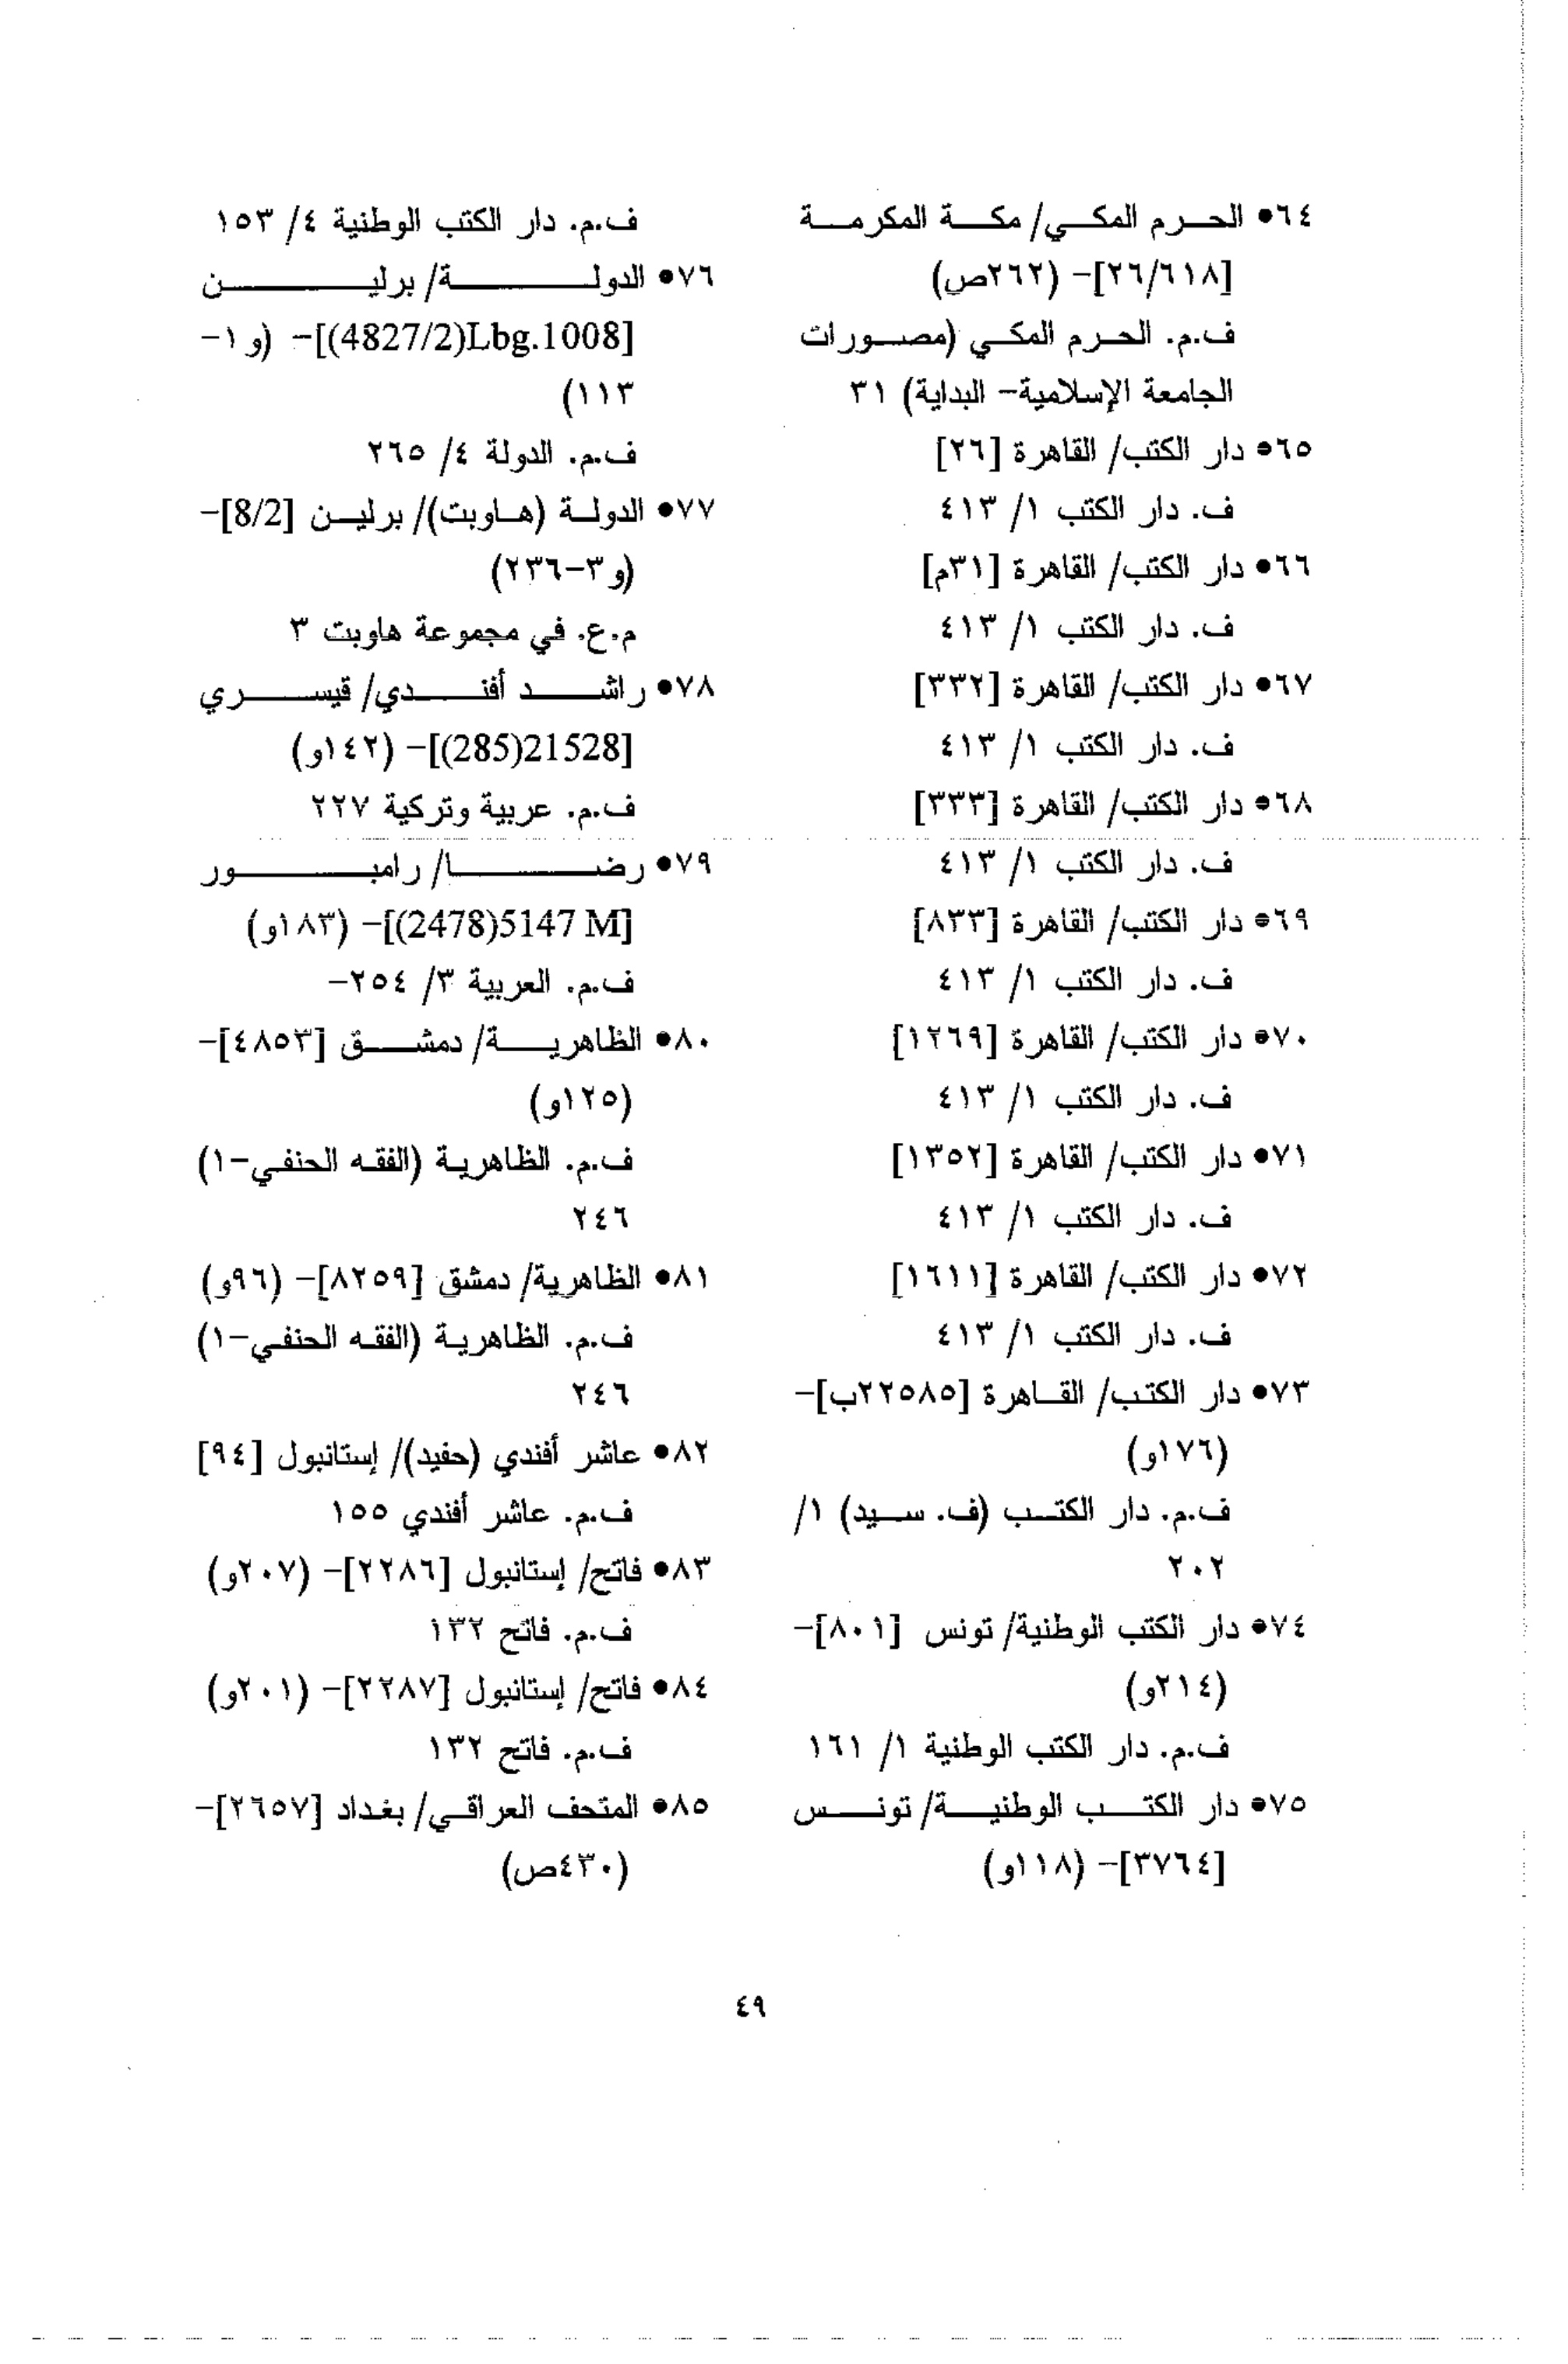 ٦٤• الحرم المكي/ مكة المكرمة
[٢٦/٦١٨]- (٢٦٢ص)
ف.م. الحرم المكي (مصورات
الجامعة الإسلامية- البداية) ٣١
٦٥• دار الكتب/ القاهرة [٢٦]
ف. دار الكتب ١/ ٤١٣
٦٦• دار الكتب/ القاهرة [٣١م]
ف. دار الكتب ١/ ٤١٣
٦٧• دار الكتب/ القاهرة [٣٣٢]
ف. دار الكتب ١/ ٤١٣
٦٨• دار الكتب/ القاهرة [٣٣٣]
ف. دار الكتب ١/ ٤١٣
٦٩• دار الكتب/ القاهرة [٨٣٣]
ف. دار الكتب ١/ ٤١٣
٧٠• دار الكتب/ القاهرة [١٢٦٩]
ف. دار الكتب ١/ ٤١٣
٧١• دار الكتب/ القاهرة [١٣٥٢]
ف. دار الكتب ١/ ٤١٣
٧٢• دار الكتب/ القاهرة [١٦١١]
ف. دار الكتب ١/ ٤١٣
٧٣• دار الكتب/ القاهرة [٢٢٥٨٥ب]-
(١٧٦و)
ف.م. دار الكتب (ف. سيد) ١/
٢٠٢
٧٤• دار الكتب الوطنية/ تونس [٨٠١]-
(٢١٤و)
ف.م. دار الكتب الوطنية ١/ ١٦١
٧٥• دار الكتب الوطنية/ تونس
[٣٧٦٤]- (١١٨و)
ف.م. دار الكتب الوطنية ٤/ ١٥٣
٧٦• الدولة/ برلين
[4827/2)Lbg.1008)]- (و١-
١١٣)
ف.م. الدولة ٤/ ٢٦٥
٧٧• الدولة (هاوبت)/ برلين [8/2]-
(و٣-٢٣٦)
م.ع. في مجموعة هاوبت ٣
٧٨• راشد أفندي/ قيسري
[285)21528)]- (١٤٢و)
ف.م. عربية وتركية ٢٢٧
٧٩• رضا/ رامبور
[2478)5147 M)]- (١٨٣و)
ف.م. العربية ٣/ ٢٥٤-
٨٠• الظاهرية/ دمشق [٤٨٥٣]-
(١٢٥و)
ف.م. الظاهرية (الفقه الحنفي-١)
٢٤٦
٨١• الظاهرية/ دمشق [٨٢٥٩]- (٩٦و)
ف.م. الظاهرية (الفقه الحنفي-١)
٢٤٦
٨٢• عاشر أفندي (حفيد)/ إستانبول [٩٤]
ف.م. عاشر أفندي ١٥٥
٨٣• فاتح/ إستانبول [٢٢٨٦]- (٢٠٧و)
ف.م. فاتح ١٣٢
٨٤• فاتح/ إستانبول [٢٢٨٧]- (٢٠١و)
ف.م. فاتح ١٣٢
٨٥• المتحف العراقي/ بغداد [٢٦٥٧]-
(٤٣٠ص)
٤٩